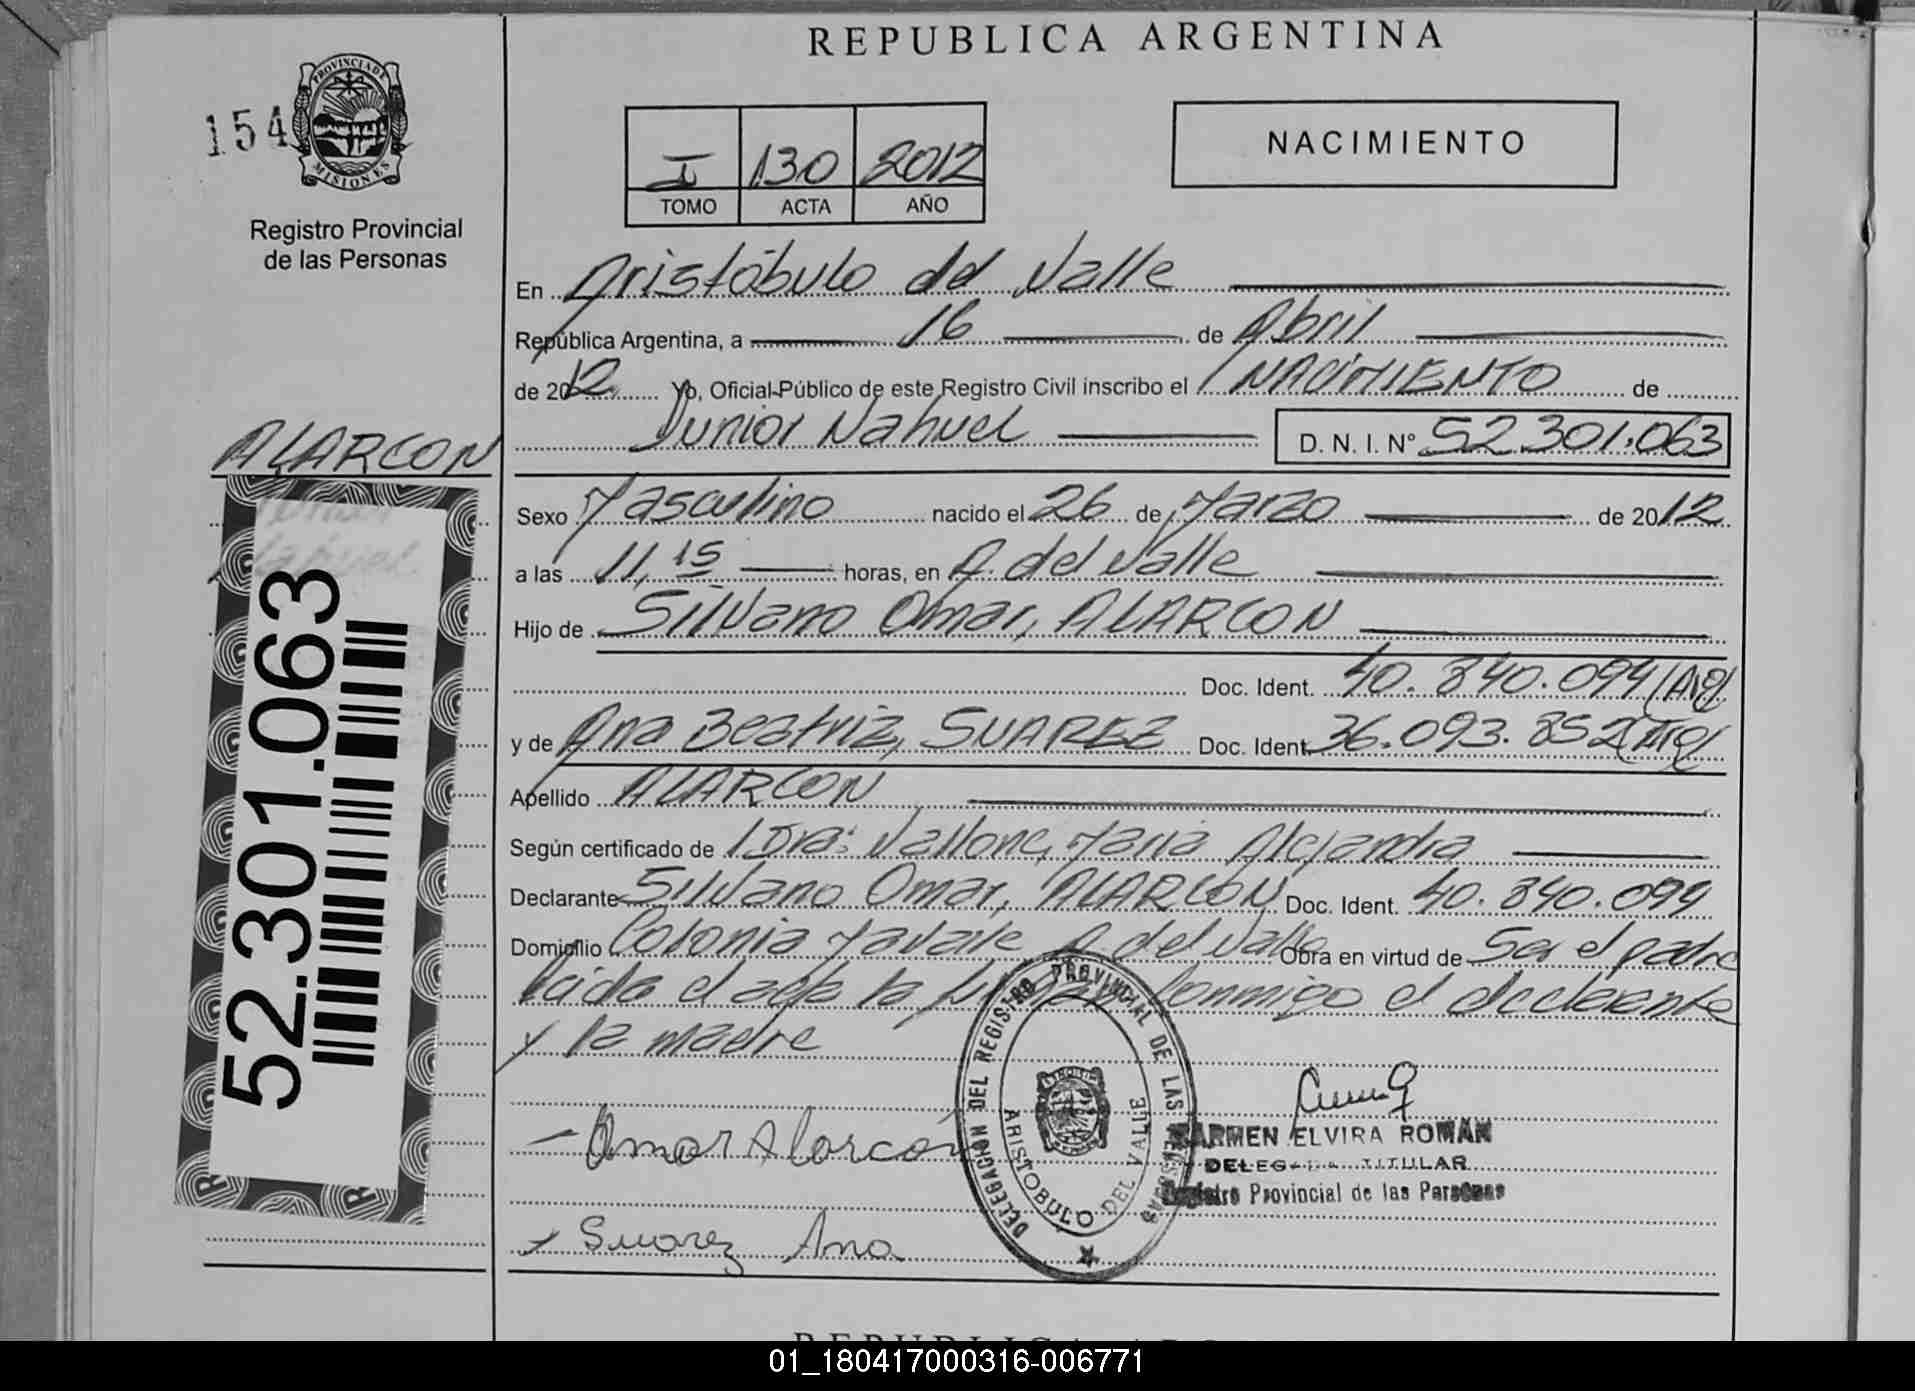 REPUBLICA ARGENTINA
154
PROVINCIA DE
MISIONES
Registro Provincial
de las Personas
I 130 2012
TOMO ACTA AÑO
NACIMIENTO
En Aristóbulo del Valle
República Argentina, a 16 de Abril
de 2012 Yo, Oficial Público de este Registro Civil inscribo el NACIMIENTO de
Junior Nahuel D. N. I. Nº 52.301.063
ALARCON
Sexo Masculino nacido el 26 de Marzo de 2012
a las 11,15 horas, en A. del Valle
Hijo de Silvano Omar, ALARCON
Doc. Ident. 40.840.094 (Arg)
y de Ana Beatriz, SUAREZ Doc. Ident. 36.093.852
Apellido ALARCON
Según certificado de Dra: Vallone, Maria Alejandra
Declarante Silvano Omar, ALARCON Doc. Ident. 40.840.094
Domicilio Colonia A. del Valle Obra en virtud de Ser el padre
leida el acta la conmigo el declarante
y la madre
52.301.063
Omar Alarcon
Suarez Ana
DELEGACION DEL REGISTRO PROVINCIAL DE LAS PERSONAS
ARISTOBULO DEL VALLE
CARMEN ELVIRA ROMAN
DELEGADA TITULAR
Registro Provincial de las Personas
01_180417000316-006771